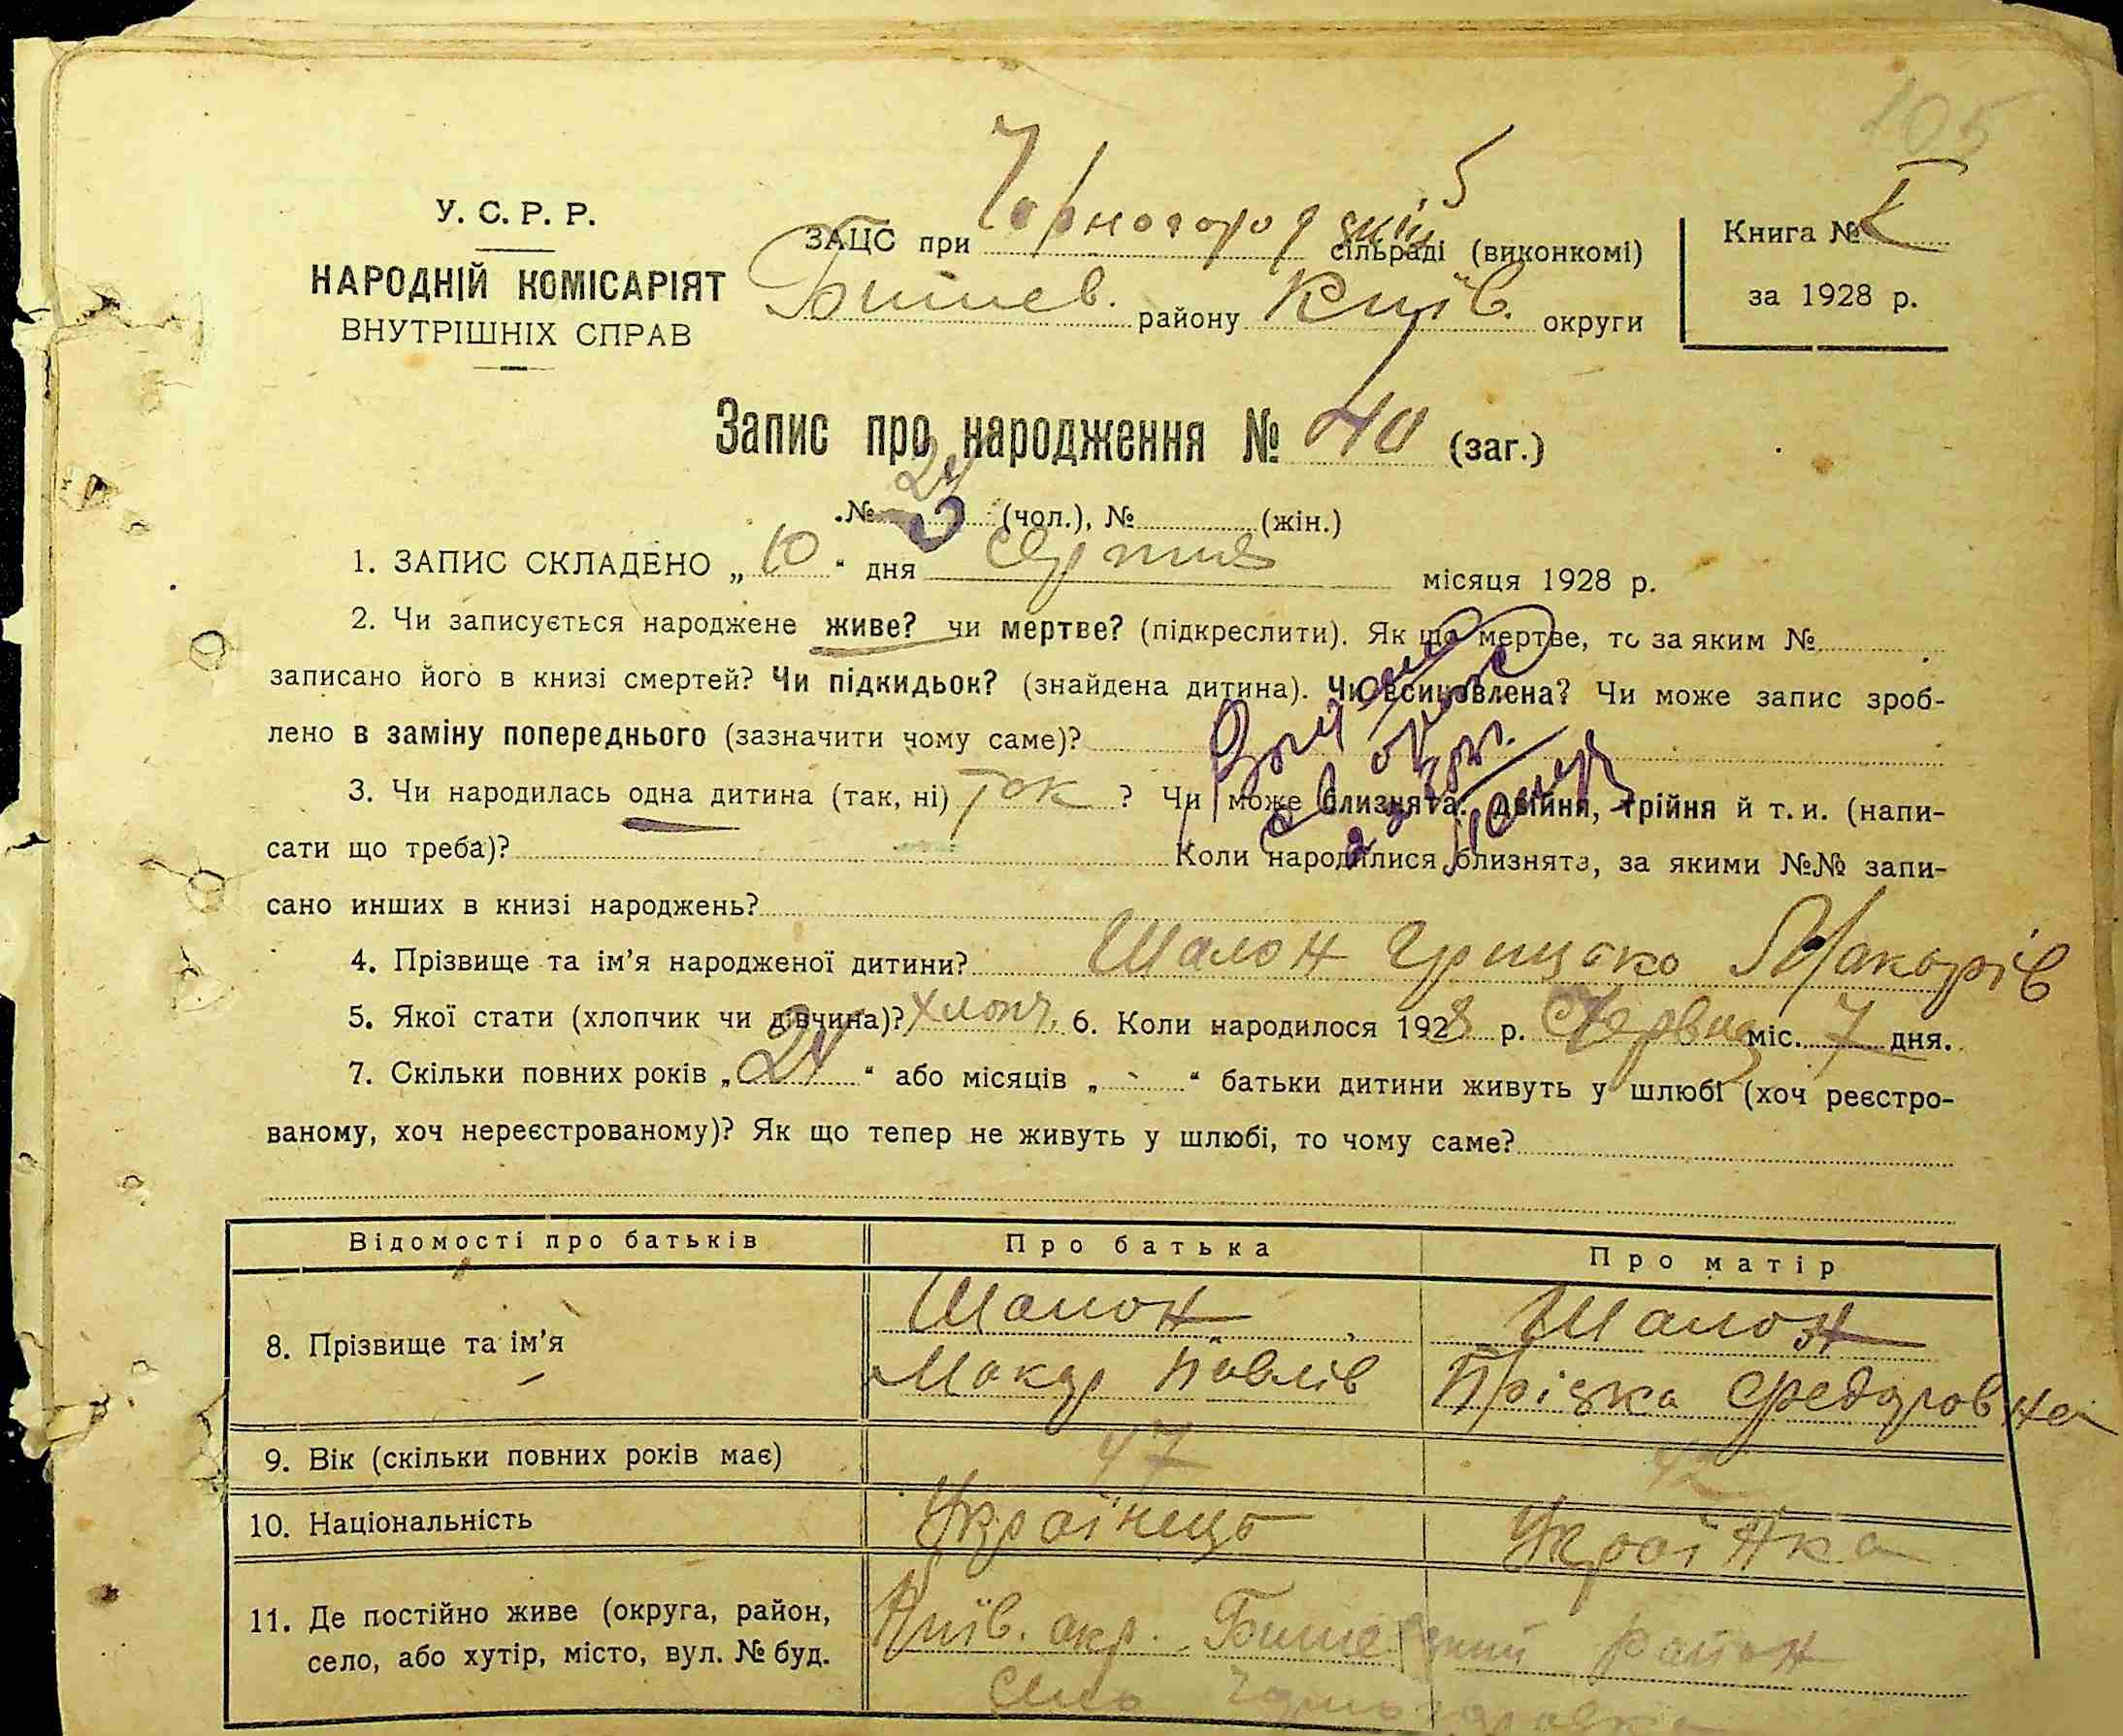 105
У. С. Р. Р.
НАРОДНІЙ КОМІСАРІЯТ
ВНУТРІШНІХ СПРАВ
ЗАЦС при Чорногородській сільраді (виконкомі)
Бишев. району Київ. округи
Книга № I
за 1928 р.
Запис про народження № 40 (заг.)
№ 24 (чол.), № (жін.)
1. ЗАПИС СКЛАДЕНО „10“ дня серпня місяця 1928 р.
2. Чи записується народжене живе? чи мертве? (підкреслити). Як що мертве, то за яким №
записано його в книзі смертей? Чи підкидьок? (знайдена дитина). Чи всиновлена? Чи може запис зроб-
лено в заміну попереднього (зазначити чому саме)?
3. Чи народилась одна дитина (так, ні) так ? Чи може близнята: двійня, трійня й т. и. (напи-
сати що треба)? Коли народилися близнята, за якими №№ запи-
сано инших в книзі народжень?
4. Прізвище та ім’я народженої дитини? Шалон Грицько Макарів
5. Якої стати (хлопчик чи дівчина)? хлопч. 6. Коли народилося 1928 р. Червня міс. 7 дня.
7. Скільки повних років „24“ або місяців „-“ батьки дитини живуть у шлюбі (хоч реєстро-
ваному, хоч нереєстрованому)? Як що тепер не живуть у шлюбі, то чому саме?
Відомості про батьків Про батька Про матір
8. Прізвище та ім’я Шалон Шалон
Макар Павлів Пріська Федоровна
9. Вік (скільки повних років має) 47 42
10. Національність Українець Українка
11. Де постійно живе (округа, район, село, або хутір, місто, вул. № буд. Київ. окр. Бишевський район
село Чорногородка